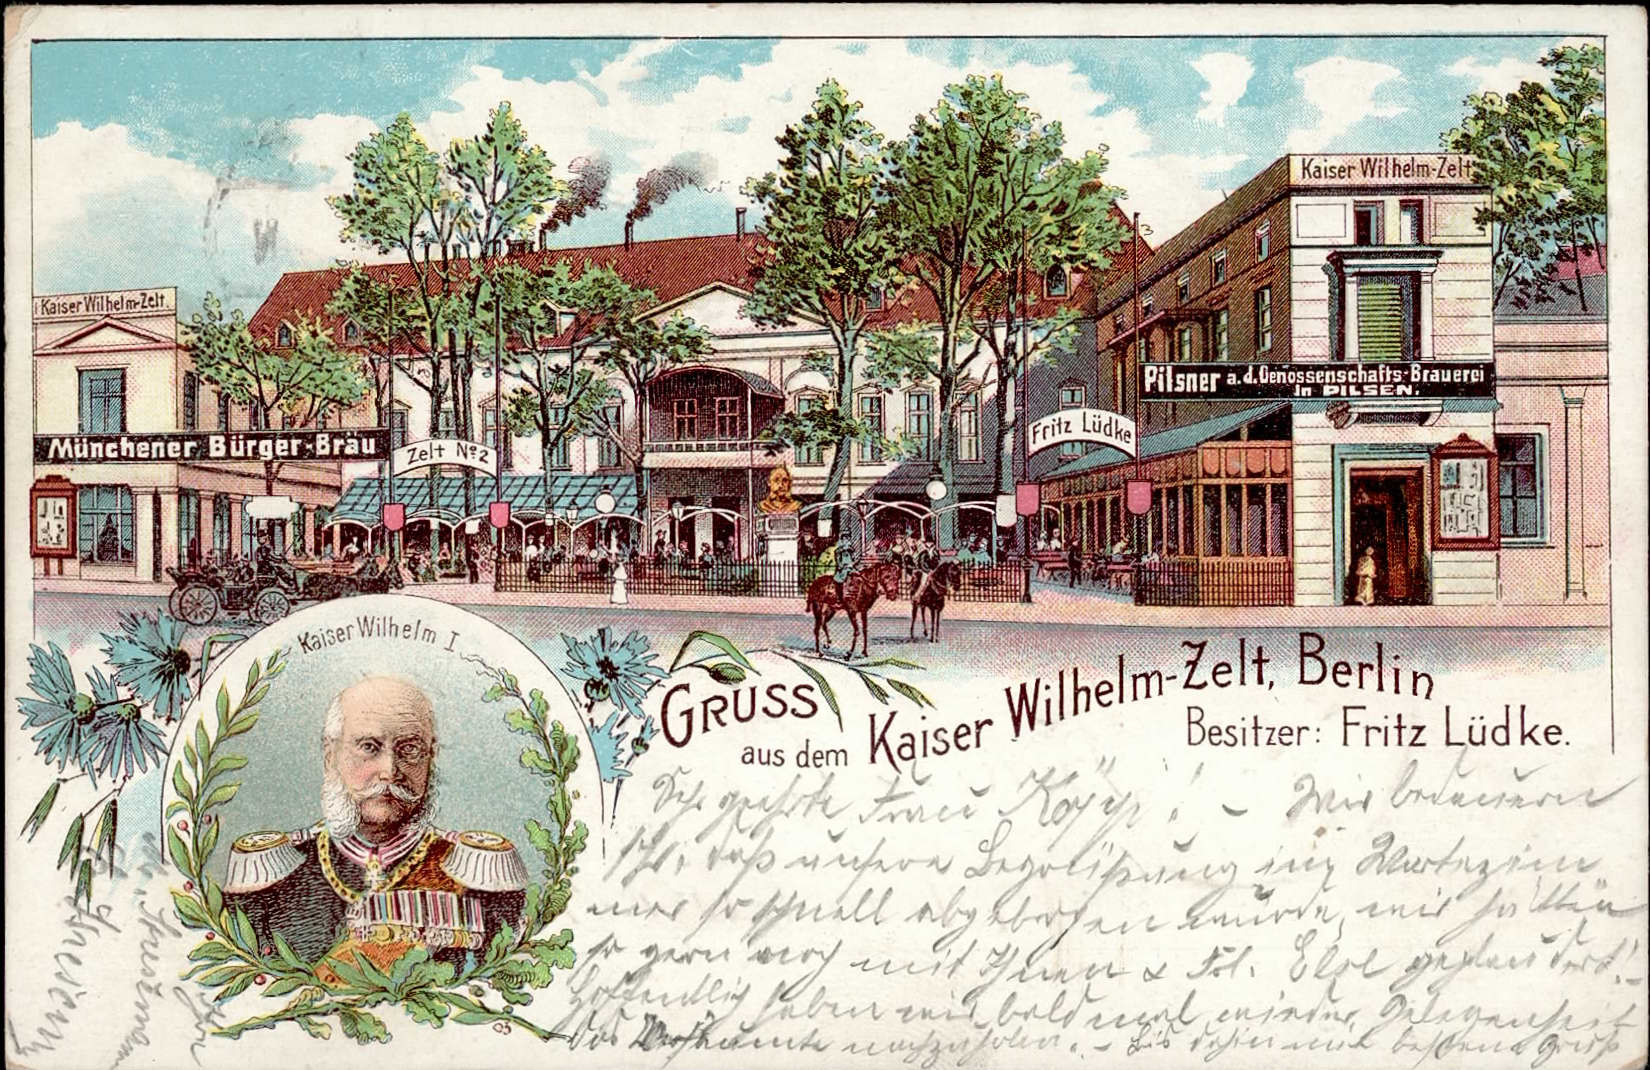 Kaiser Wilhelm-Zelt
Kaiser Wilhelm-Zelt.
Pilsner a.d. Genossenschafts-Brauerei
in PILSEN.
Münchener Bürger-Bräu
Zelt No 2
Fritz Lüdke
Kaiser Wilhelm I
GRUSS
aus dem Kaiser Wilhelm-Zelt, Berlin
Besitzer: Fritz Lüdke.
Sehr geehrte Frau Kopp! – Wir bedauern
sehr, daß unsere Begrüßung im Wartezim
mer so schnell abgebrochen wurde, wir hätten
so gern noch mit Ihnen & Frl. Else geplaudert! –
Hoffentlich haben wir bald mal wieder Gelegenheit
das Versäumte nachzuholen. – Bis dahin mit bestem Gruß